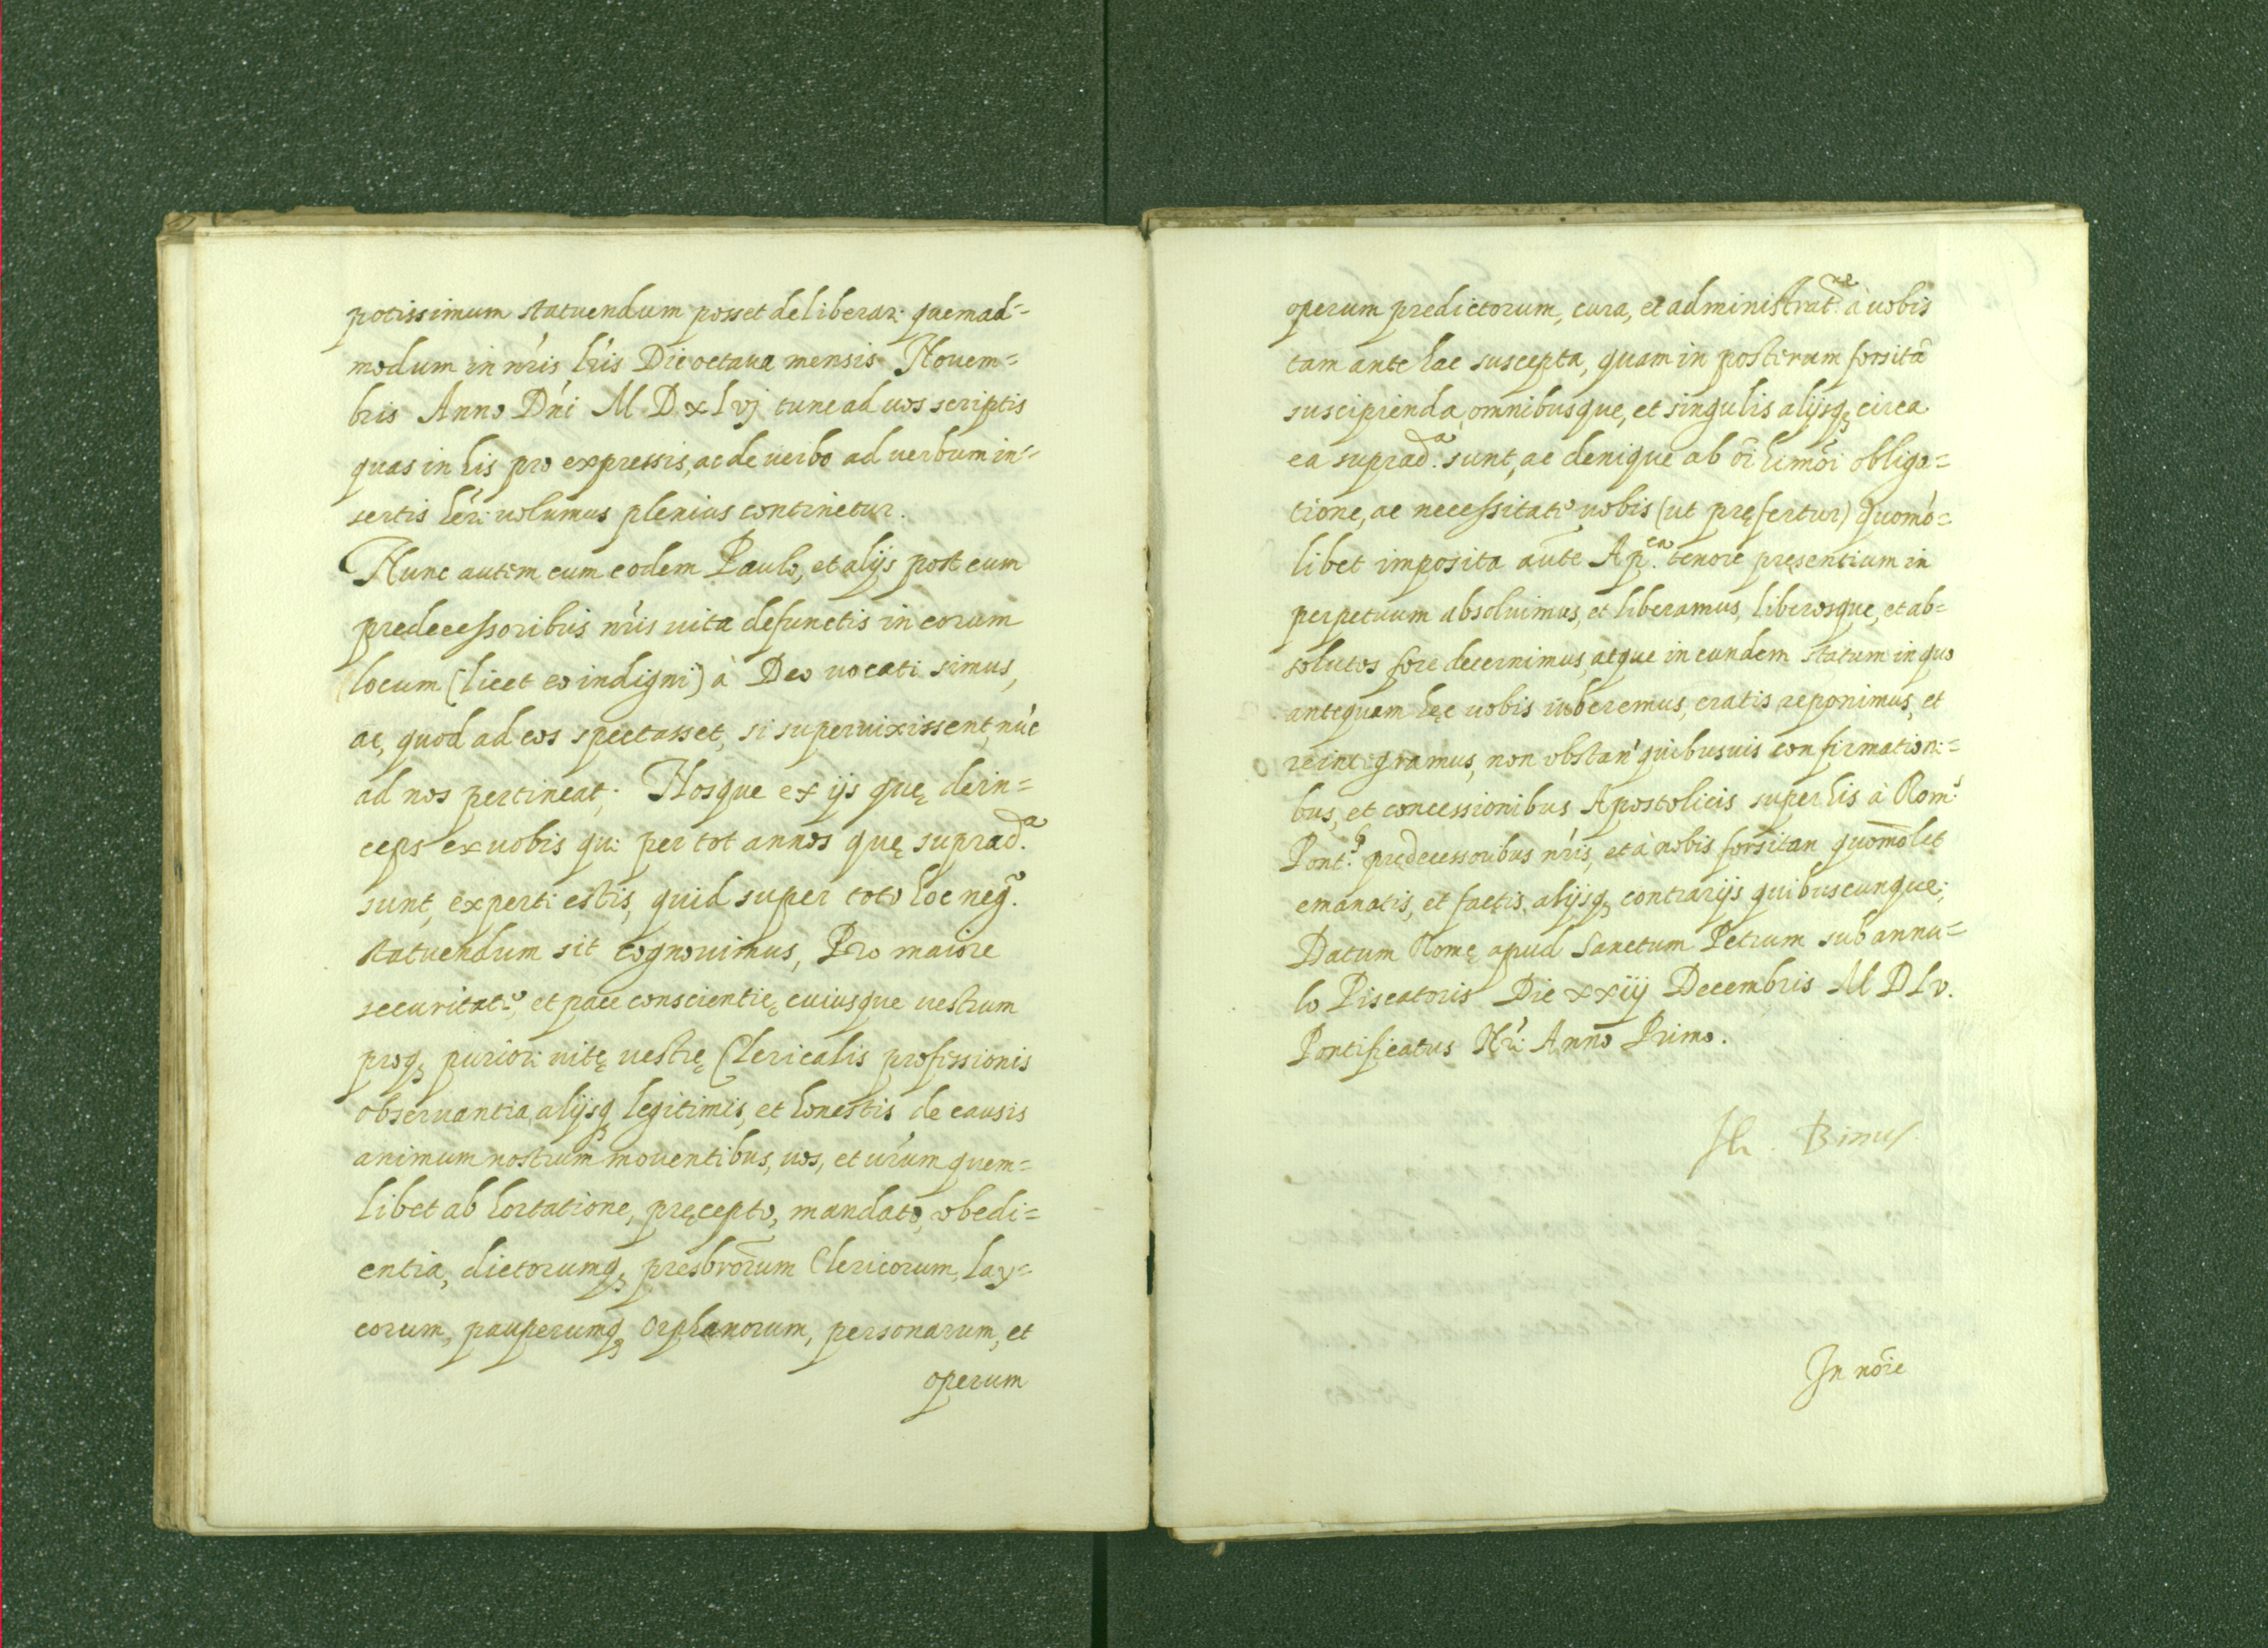 potissimum statuendum posset deliberari quemad=
modum in nr̃is lr̃is Die octaua mensis Nouem=
bris Anno Dñi M D xlvj tunc ad uos scriptis
quas in his pro expressis, ac de uerbo ad uerbum in=
sertis hr̃i uolumus plenius continetur.
Nunc autem cum eodem Paulo, et alijs post eum
predecessoribus nr̃is uita defunctis in eorum
locum (licet eo indigni) à Deo uocati simus,
ac, quod ad eos spectasset, si superuixissent, nũc
ad nos pertineat; Nosque ex ijs quę dein=
ceps ex uobis qui per tot annos quę suprad.ᵃ
sunt, experti estis, quid super toto hoc neg.º
statuendum sit cognouimus, Pro maiore
securitate, et pace conscientię cuiusque uestrum
proq₃ puriori uitę uestrę Clericalis professionis
obseruantia, alijsq₃ legitimis, et honestis de causis
animum nostrum mouentibus, uos, et ur̃um quem=
libet ab hortatione, pręcepto, mandato, obedi=
entia, dictorumq₃ presbr̃orum Clericorum, lay=
corum, pauperumq₃ Orphanorum, personarum, et
operum
operum predictorum, cura, et administrat.ⁿᵉ à uobis
tam ante hac suscepta, quam in posterum forsitã
suscipienda, omnibusque, et singulis alijsq₃ circa
ea suprad.ᵃ sunt, ac denique ab õi hm̃õi obliga=
tione, ac necessitate uobis (ut pręfertur) quomõ=
libet imposita aũte Ap.ᶜᵃ tenore pręsentium in
perpetuum absoluimus, et liberamus, liberosque, et ab=
solutos fore decernimus, atque in eundem statum in quo
antequam hęc uobis iuberemus, eratis reponimus, et
reintegramus, non obstan̄ quibusuis confirmationi=
bus, et concessionibus Apostolicis super his à Rom.ˢ
Pont.ᵇ pręd​ecessoribus nr̃is, et à nobis forsitan quomõlet
emanatis, et factis, alijsq₃ contrarijs quibuscunque;
Datum Romę apud Sanctum Petrum sub annu=
lo Piscatoris Die xxiij Decembris M D L v.
Pontificatus Nr̃i Anno Primo.
Binus
In nõie